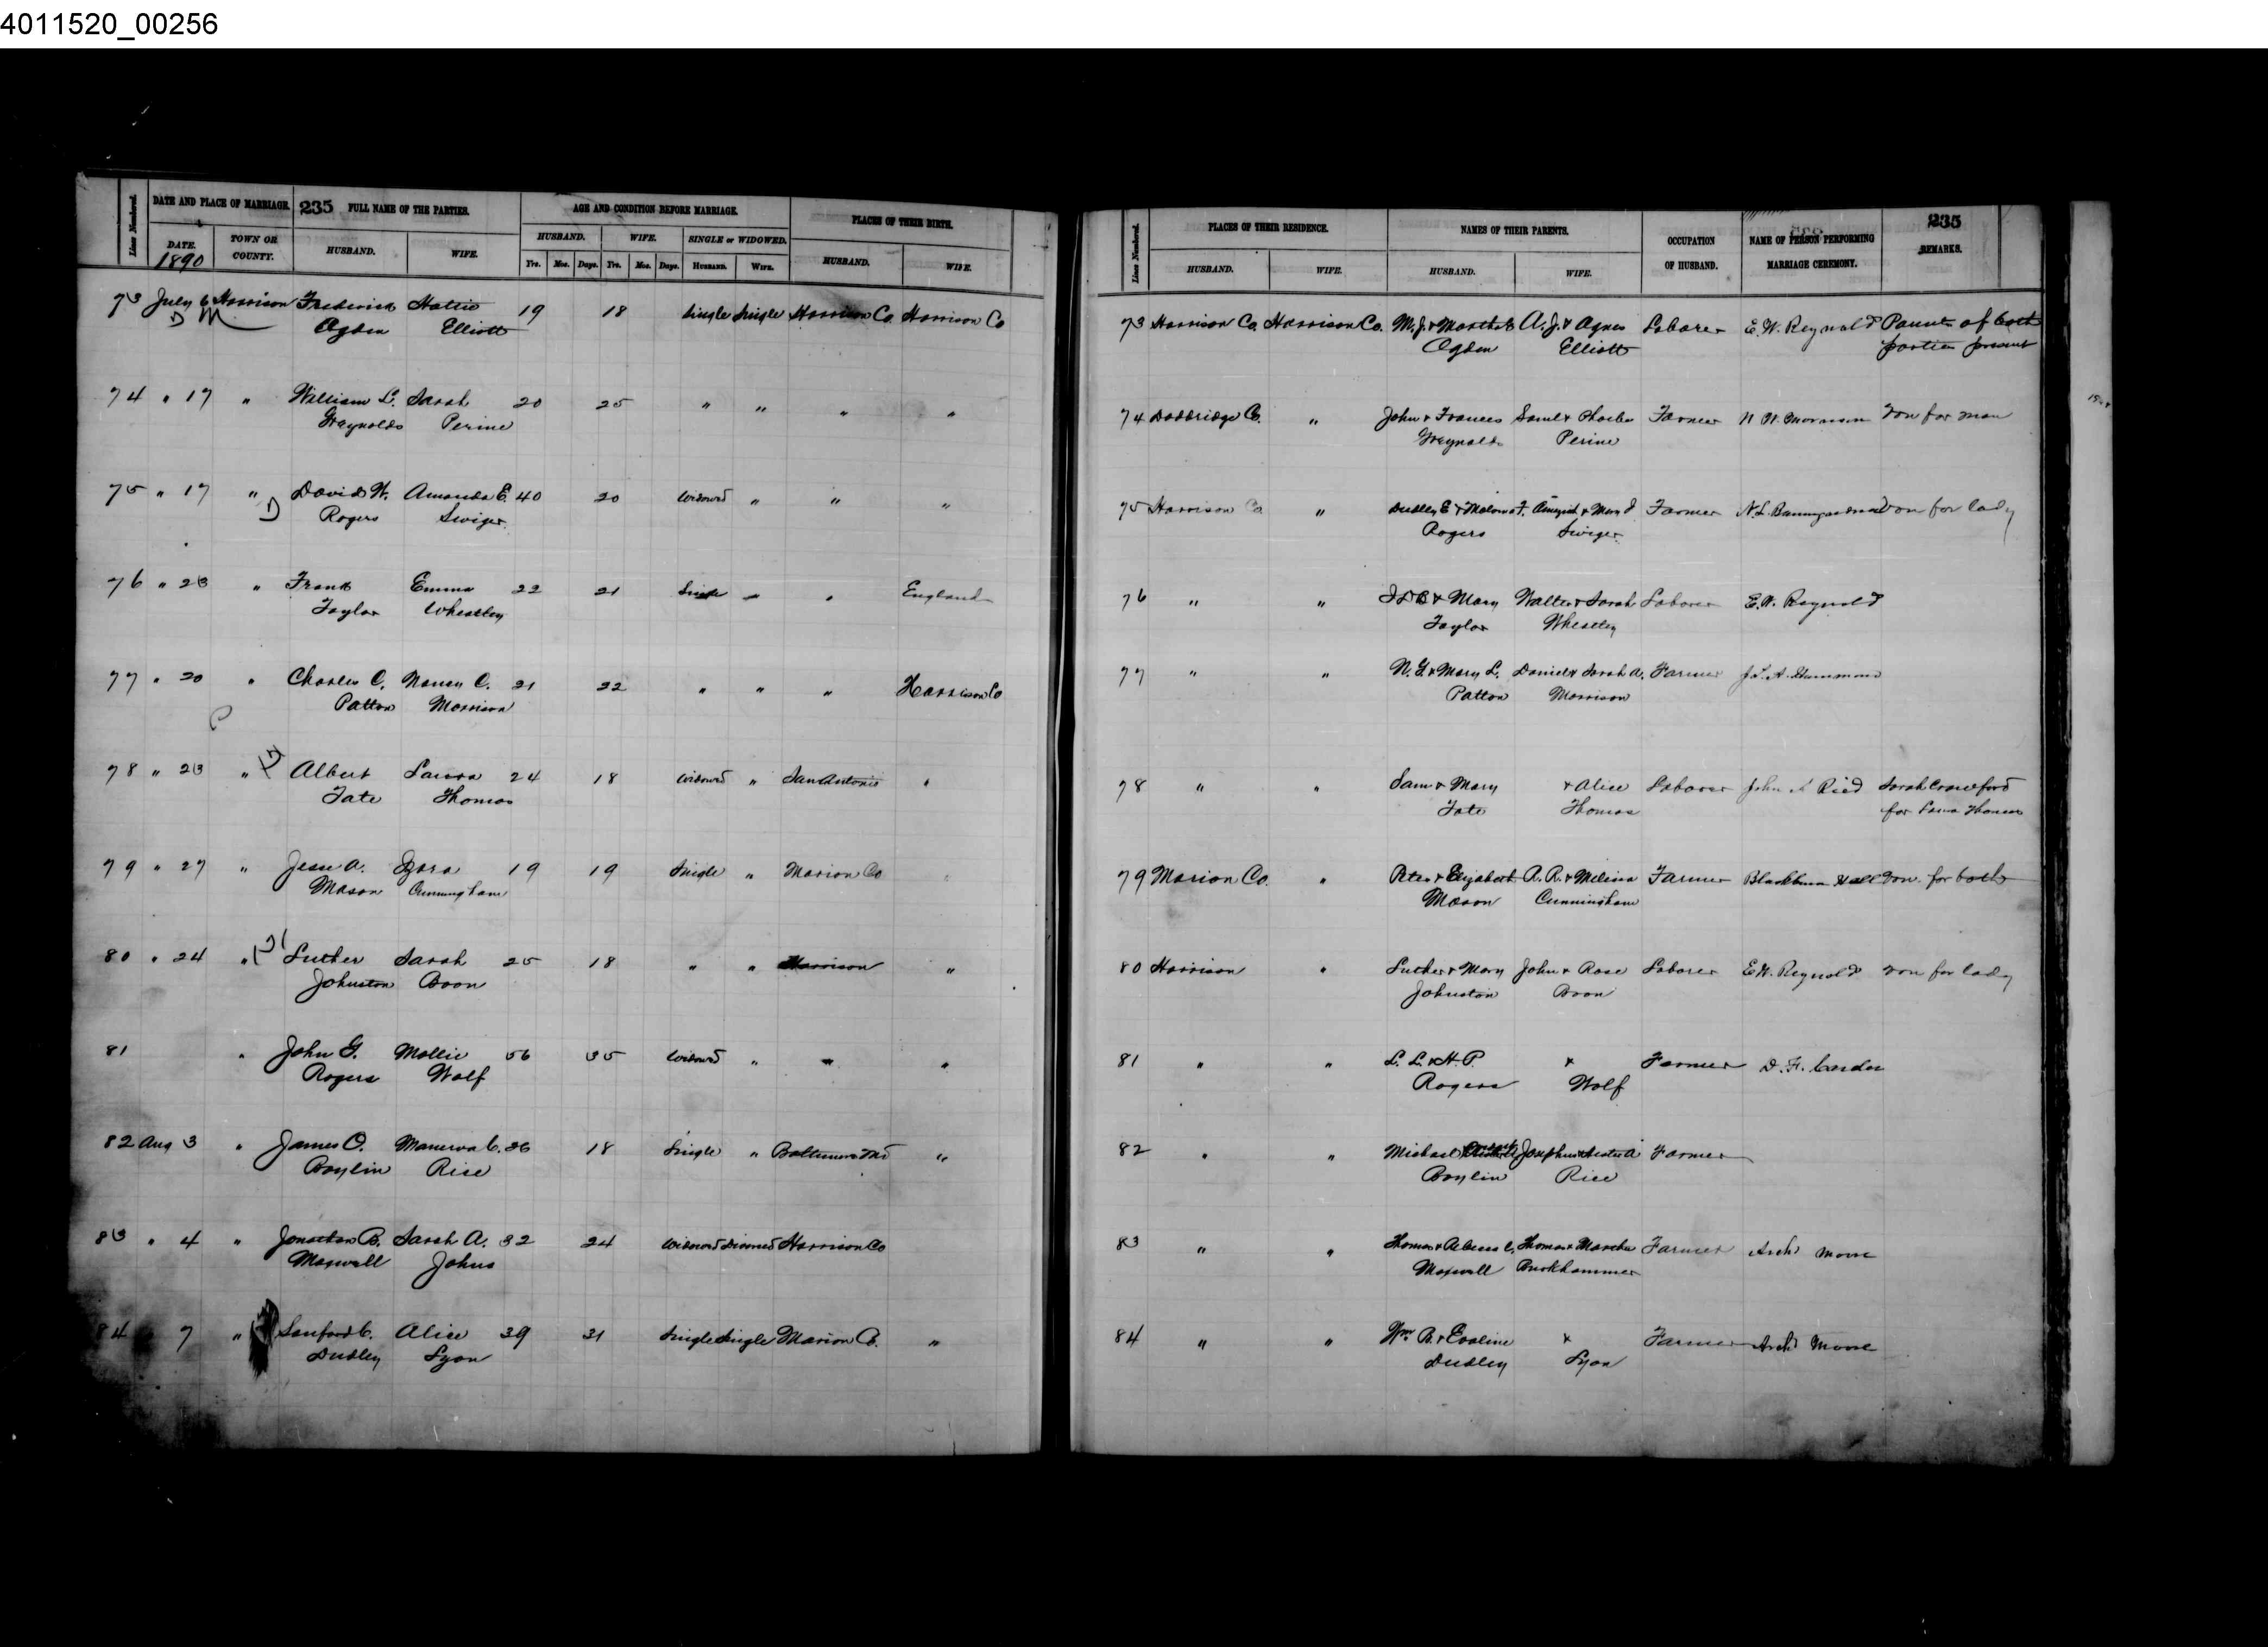 4011520_00256
Lines Numbered. DATE AND PLACE OF MARRIAGE. 235 FULL NAME OF THE PARTIES. AGE AND CONDITION BEFORE MARRIAGE. PLACES OF THEIR BIRTH.
DATE. TOWN OR COUNTY. HUSBAND. WIFE. HUSBAND. WIFE. SINGLE or WIDOWED. HUSBAND. WIFE.
1890 Yrs. Mos. Days. Yrs. Mos. Days. HUSBAND. WIFE.
73 July 6 Harrison Frederick Hattie 19 18 Single Single Harrison Co. Harrison Co
Ogden Elliott
74 " 17 " William L. Sarah 20 25 " " " "
Graynolds Perine
75 " 17 " David W. Amanda E. 40 20 Widowed " " "
Rogers Swiger
76 " 23 " Frank Emma 22 21 Single " " England
Taylor Wheatley
77 " 20 " Charles C. Nancy C. 21 22 " " " Harrison Co
Patton Morrison
78 " 23 " Albert Laura 24 18 Widowed " San Antonio "
Tate Thomas
79 " 27 " Jesse A. Izora 19 19 Single " Marion Co "
Mason Cunningham
80 " 24 " Luther Sarah 25 18 " " Harrison "
Johnston Boon
81 " John G. Mollie 56 35 Widowed " " "
Rogers Wolf
82 Aug 3 " James O. Manerva C. 26 18 Single " Baltimore Md "
Boylin Rise
83 " 4 " Jonathan B. Sarah A. 32 24 Widowed Divorced Harrison Co
Maxwell Johns
84 " 7 " Sanford C. Alice 39 31 Single Single Marion Co. "
Dudley Lyon
Lines Numbered. PLACES OF THEIR RESIDENCE. NAMES OF THEIR PARENTS. OCCUPATION OF HUSBAND. NAME OF PERSON PERFORMING MARRIAGE CEREMONY. 235 REMARKS.
HUSBAND. WIFE. HUSBAND. WIFE.
73 Harrison Co. Harrison Co. M. J. & Martha A. J. & Agnes Laborer E. W. Reynolds Parents of both
Ogden Elliott parties present
74 Doddridge Co. " John & Frances Saml & Phoebe Farmer Morrison for man
Graynolds Perine
75 Harrison Co. " Dudley E & F. & Mary Farmer N. L. Baumgardner for lady
Rogers Swiger
76 " " & Mary Walter & Sarah Laborer E. W. Reynolds
Taylor Wheatley
77 " " N. G. & Mary L. Daniel & Sarah A. Farmer Hammond
Patton Morrison
78 " " Sam & Mary & Alice Laborer John Ried Sarah Crawford
Tate Thomas for Laura Thomas
79 Marion Co. " Peter & Elizabeth R. R. & Melissa Farmer Blackburn Hall for both
Mason Cunningham
80 Harrison " Luther & Mary John & Rose Laborer E. W. Reynolds for lady
Johnston Boon
81 " " L. L. & H. P. & Farmer D. F. Carder
Rogers Wolf
82 " " Michael Josephus & Farmer
Boylin Rice
83 " " Thomas & Thomas & Martha Farmer Arch Moore
Maxwell Burkhammer
84 " " Wm B. & Evaline & Farmer Arch Moore
Dudley Lyon